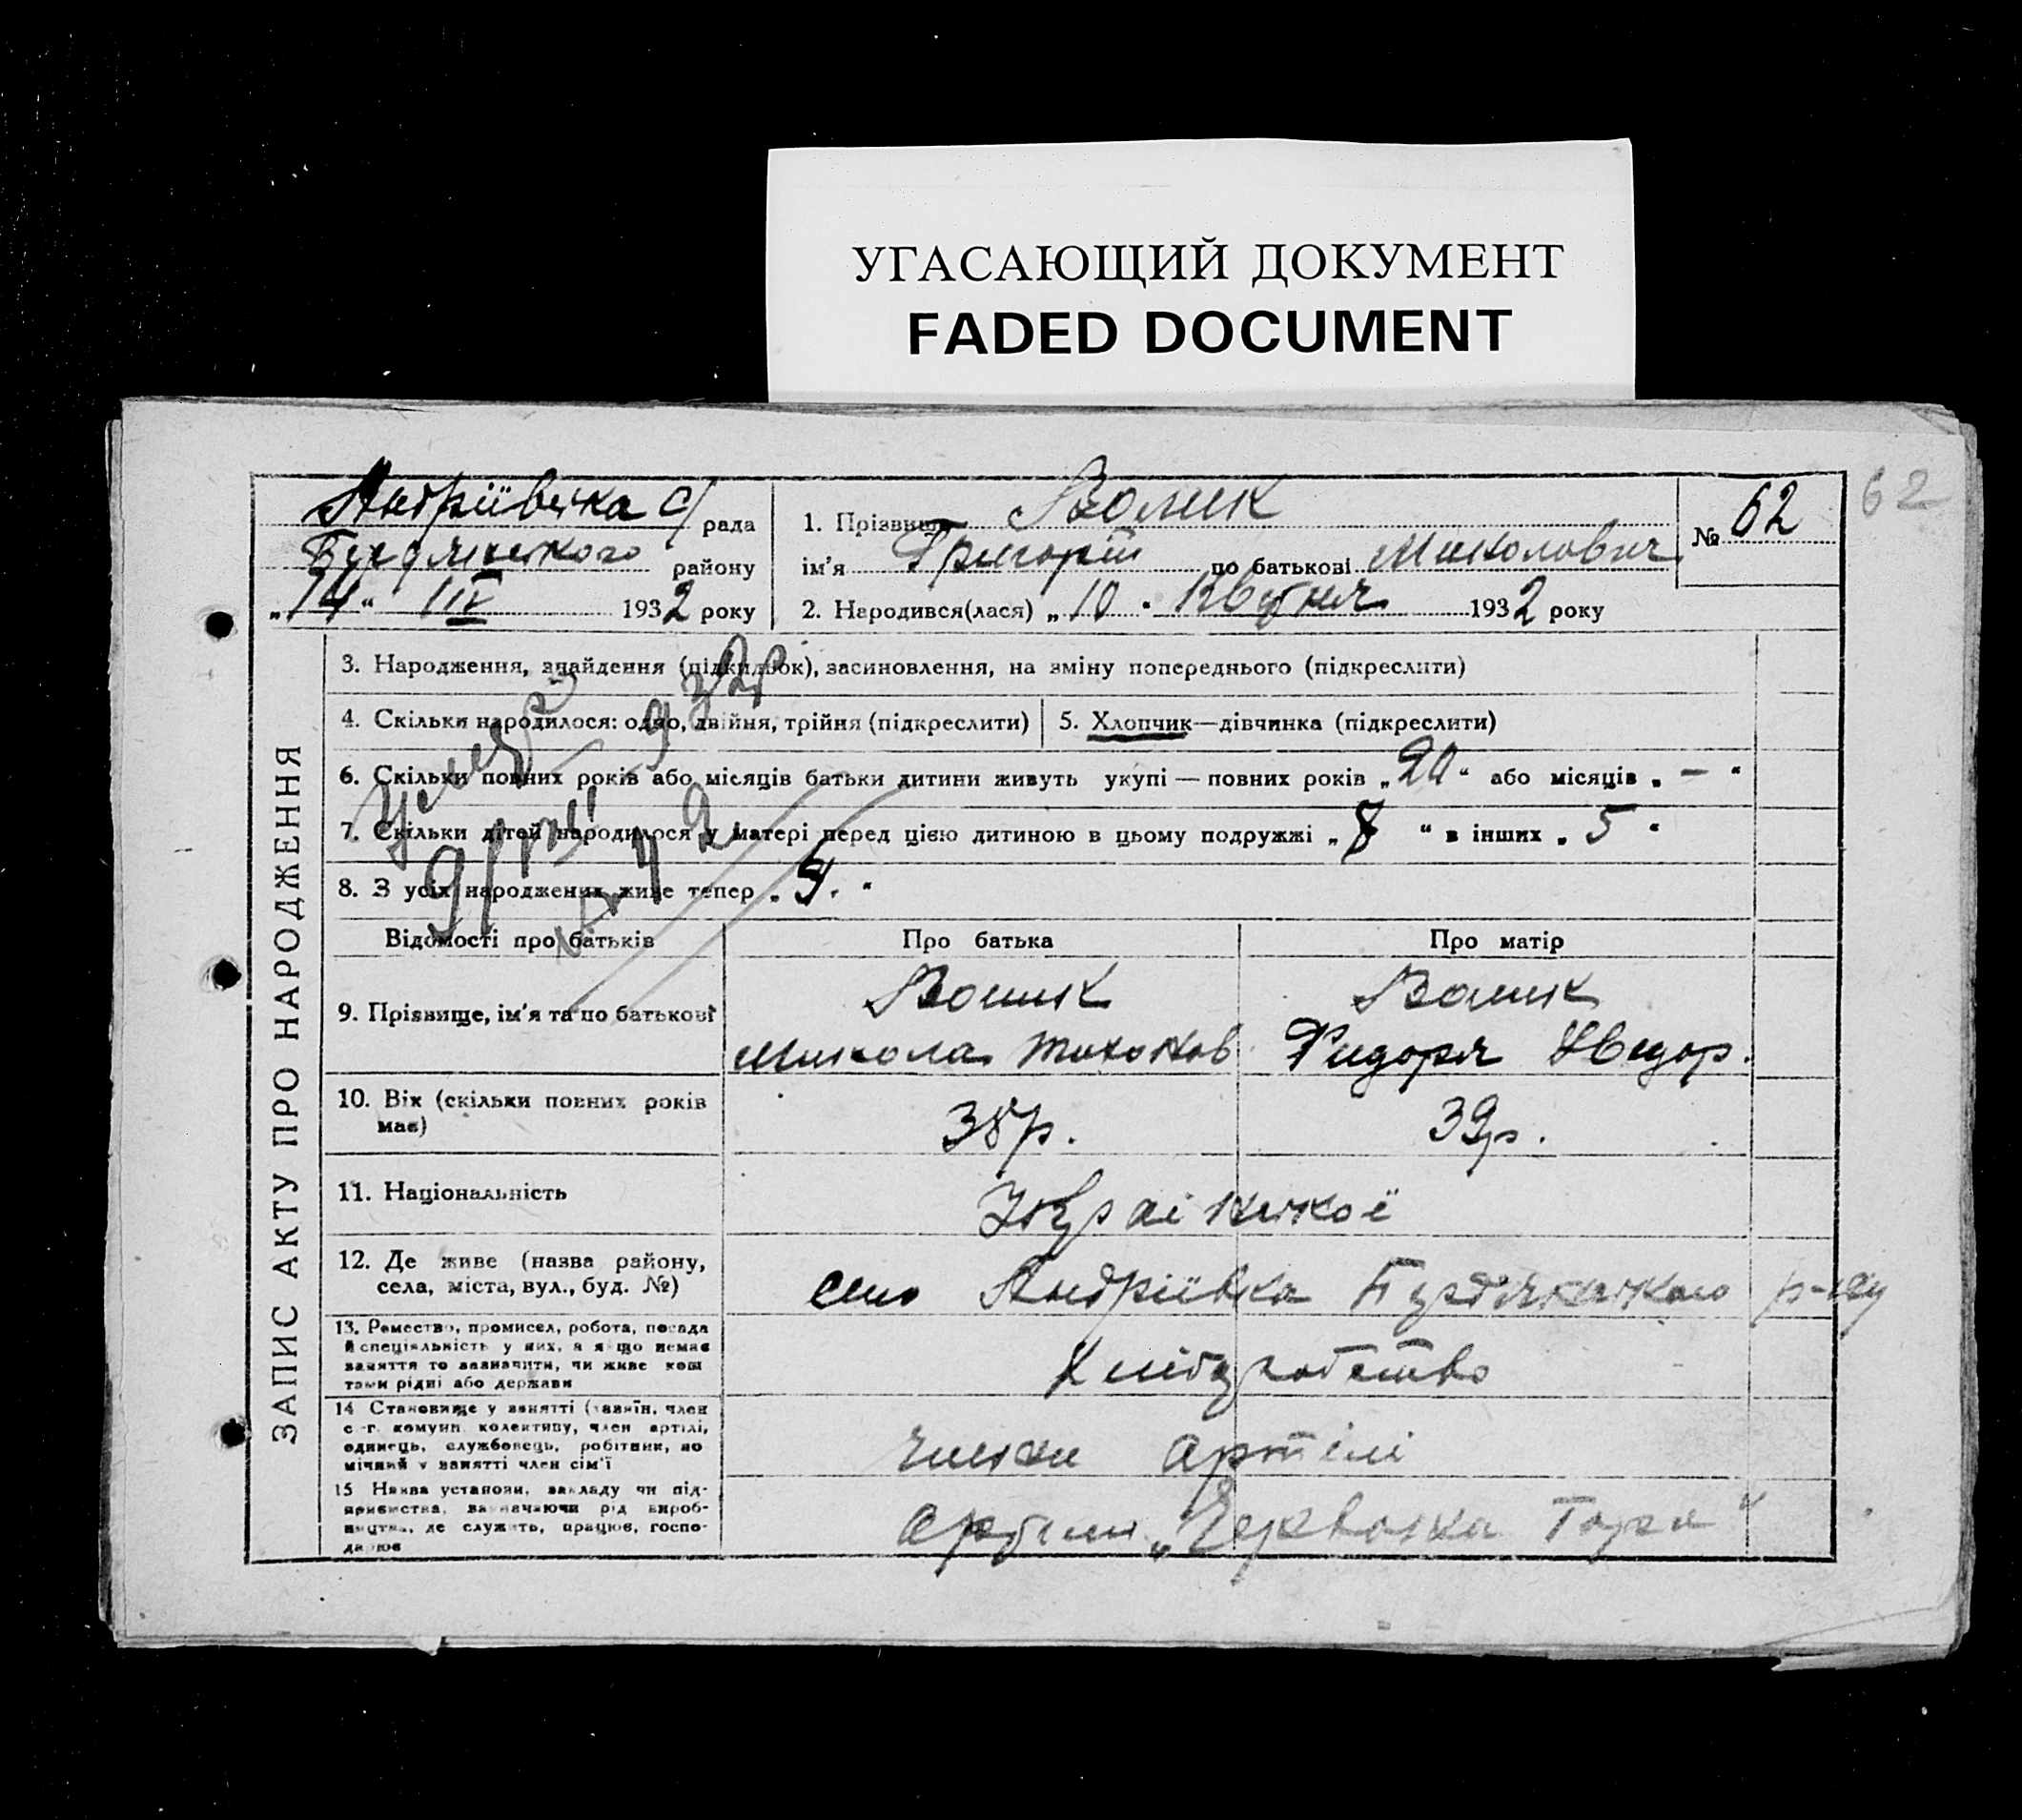 УГАСАЮЩИЙ ДОКУМЕНТ
FADED DOCUMENT
62
Андріївська с/рада
Бердянського району
„14“ 1932 року
1. Прізвище Волик
ім'я Григорій по батькові Миколович
№ 62
2. Народився(лася) „10“ Квітня 1932 року
ЗАПИС АКТУ ПРО НАРОДЖЕННЯ
3. Народження, знайдення (підкидьок), засиновлення, на зміну попереднього (підкреслити)
4. Скільки народилося: одно, двійня, трійня (підкреслити)
5. Хлопчик—дівчинка (підкреслити)
6. Скільки повних років або місяців батьки дитини живуть укупі — повних років „20“ або місяців „–“
7. Скільки дітей народилося у матері перед цією дитиною в цьому подружжі „8“ в інших „5“
8. З усіх народжених живе тепер
Умер
Відомості про батьків
Про батька
Про матір
9. Прізвище, ім'я та по батькові
Волик
Микола Тихонов
Волик
Фидоря Хведор.
10. Вік (скільки повних років має)
38 р.
39 р.
11. Національність
Української
12. Де живе (назва району,
села, міста, вул., буд. №)
село Андріївка Бурдянського р-ну
13. Ремество, промисел, робота, посада
й спеціяльність у них, а якщо немає
заняття то зазначити, чи живе кош
тами рідні або держави
Хліборобство
14 Становище у занятті (хазяїн, член
с-г. комуни колективу, член артілі,
одинець, службовець, робітник, по
мічний у занятті член сім'ї
члени артілі
15 Назва установи, закладу чи під-
приємства, зазначаючи рід вироб-
ництва, де служить, працює, госпо-
дарює
Артіли „Червона Гора“